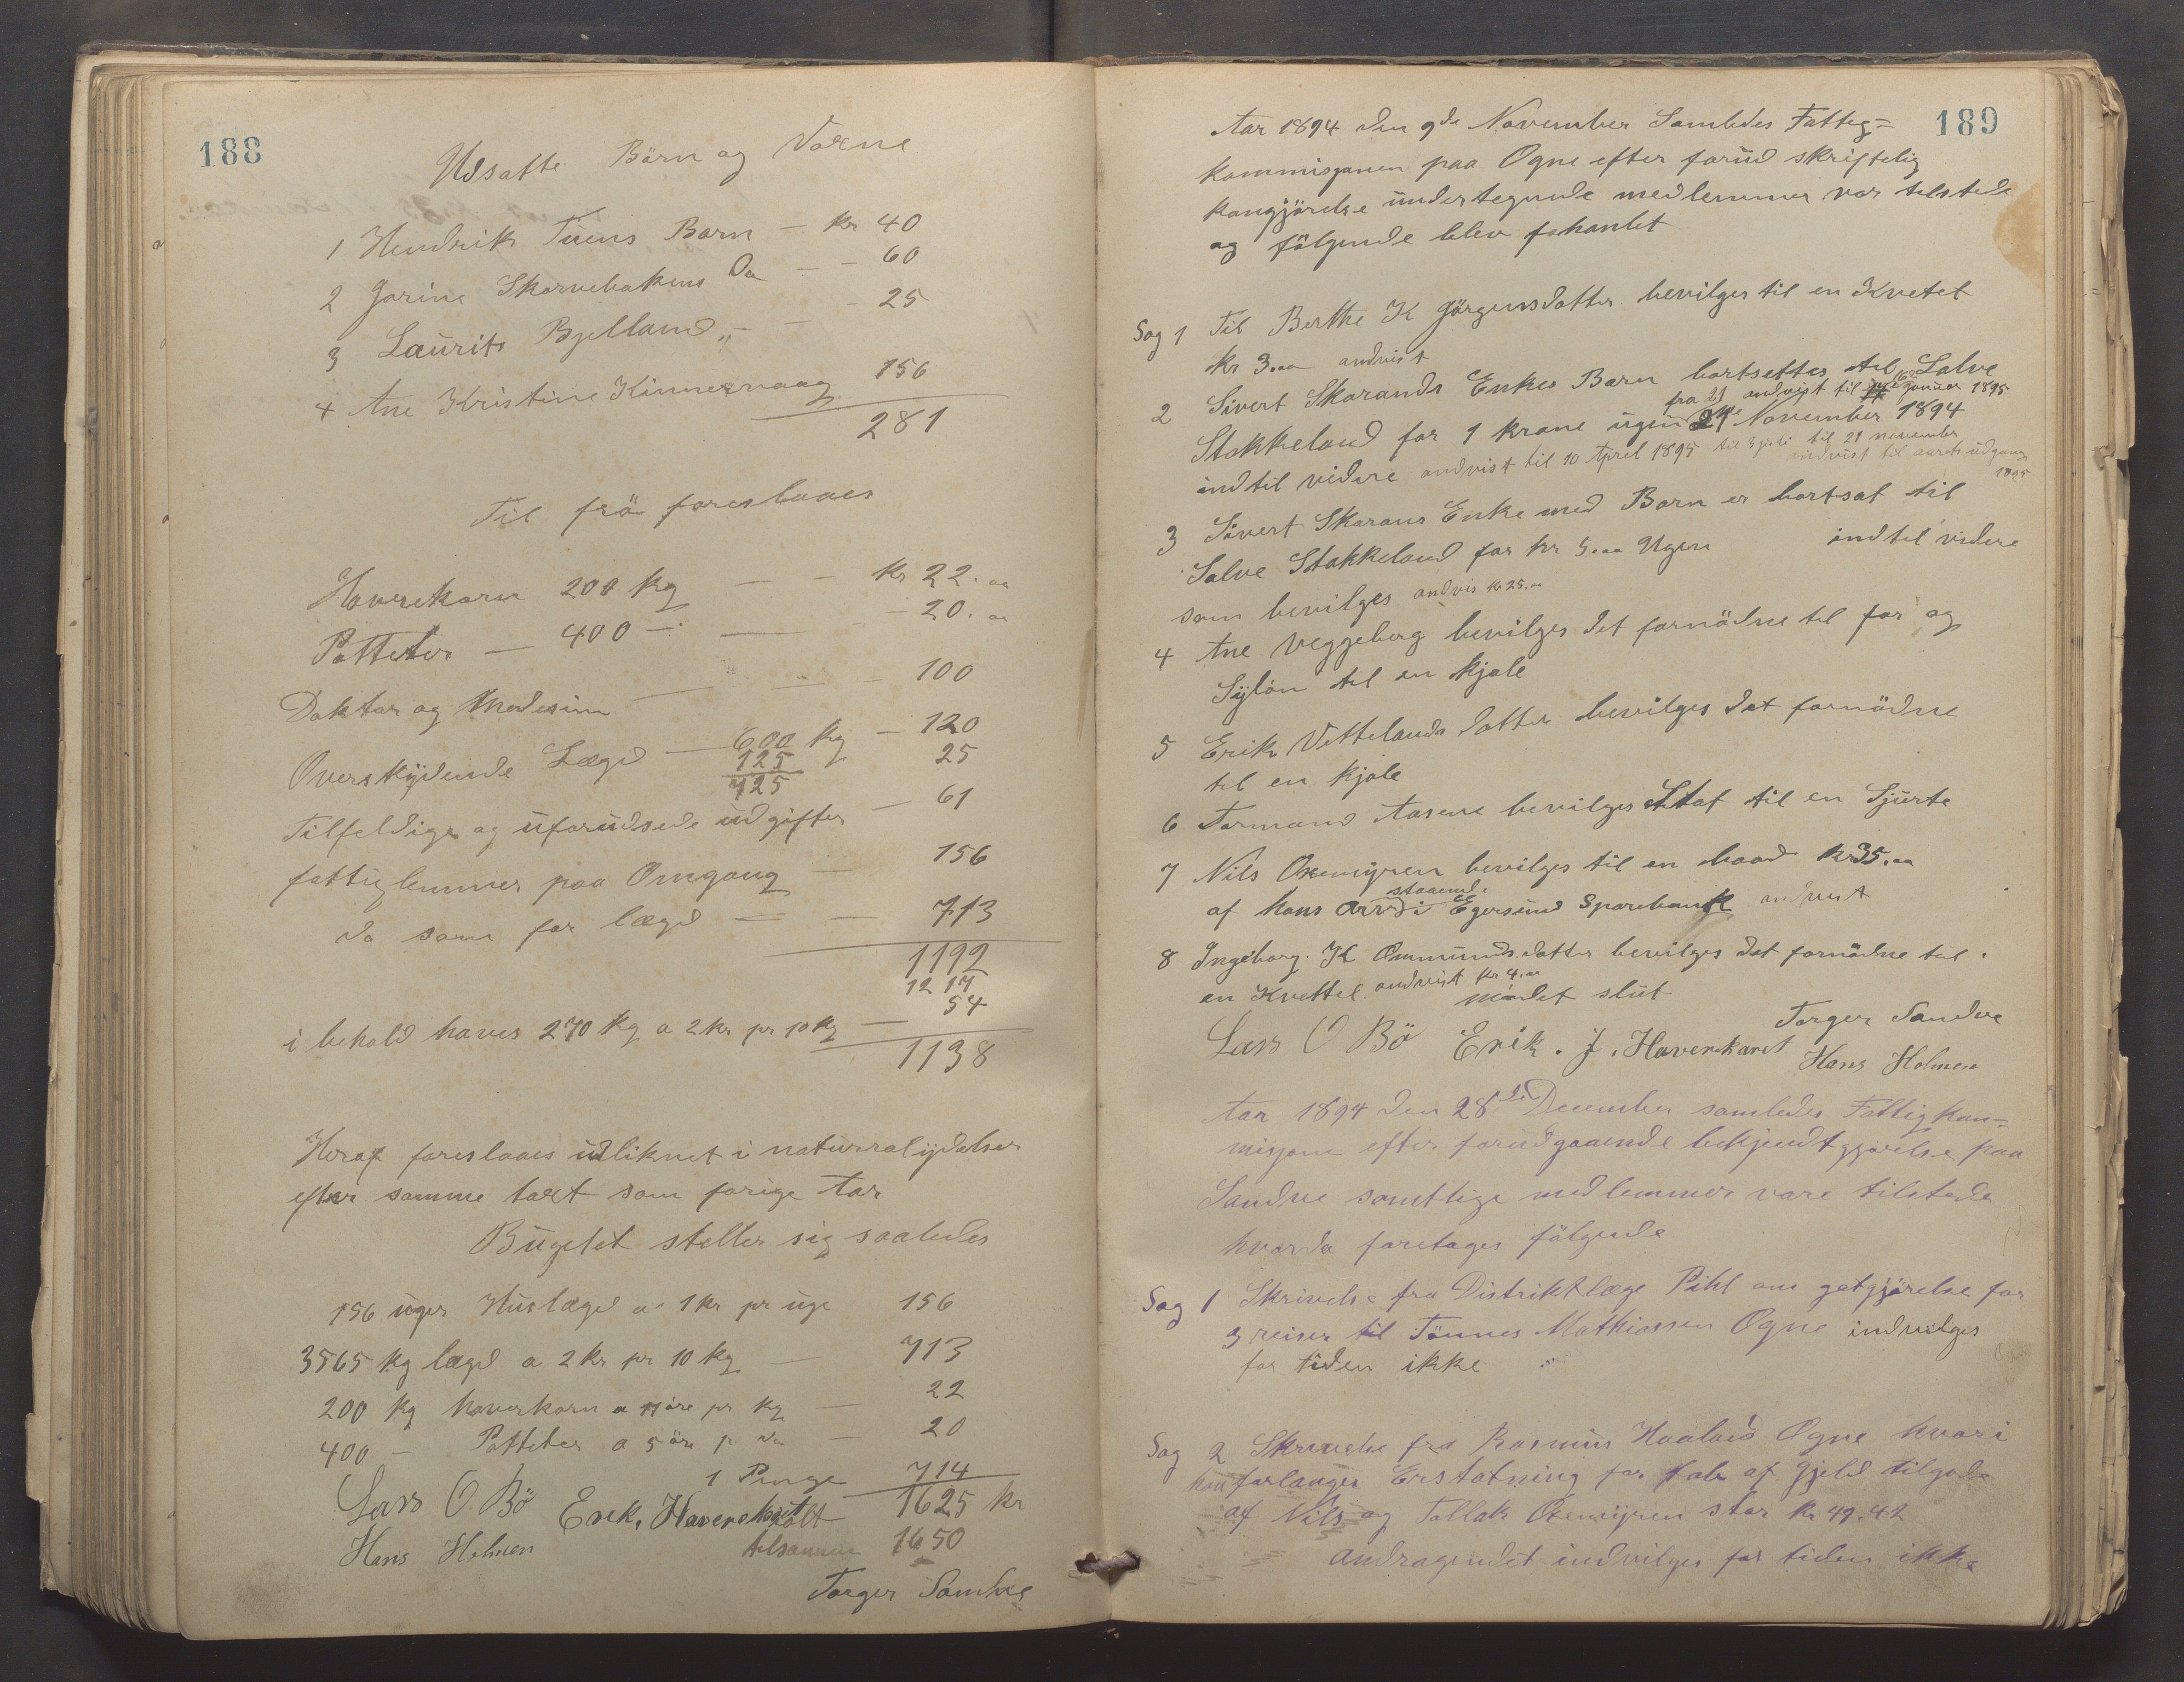 188
Udsatte Börn og Vorne
1 Hendrik Tuens Barn - kr 40
2 Jorine Skarvebakens Da - - 60
3 Laurits Bjelland „ - - 25
4 Ane Kristine Kinnervaag 156
281
Til frö foreslaaes
Havrekorn 200 kg - - kr 22.oo
Potteter - 400 - - 20.oo
Doktor og Medesin - 100
Overskydende Lægd - 600 kg - 120
125 25
725
Tilfeldige og uforudsede udgifter - 61
fattiglemmer paa Omgang - 156
do som for lægd - - 713
1192
1217
i behold haves 270 kg a 2 kr pr 10 kg - 54
1138
Heraf foreslaaes udliknet i naturralydelser
efter samme taxt som forige Aar
Bugetet steller sig saaledes
156 uger Huslægd a 1 kr pr uge 156
3565 kg lægd a 2 kr pr 10 kg - 713
200 kg haverkorn a 11 öre pr kg - 22
400 - Potteter a 5 öre p do - 20
1 Penge 714
Lars O. Bö Erik. Haverskart 1625 kr
Hans Holmen tilsammen 1650
Torger Sandve
189
Aar 1894 den 9de November Samledes Fatteg=
kommisjonen paa Ogne efter forud skriftelig
kongjörelse undertegnede medlemmer var telstede
og fölgende blev fohanlet
Sag 1 Til Berthe K Jörgensdatter bevilges til en Kvetel
kr 3.oo andvist
2 Sivert Skarands Enkes Barn bortsettes til Salve
fra 21 andvist til 16de Januar 1895
Stokkeland for 1 krone ugen 21de November 1894
indtil videre andvist til 10 April 1895 til 3 juli til 21 november
andvist til aarets udgang
1895
3 Sivert Skarans Enke med Barn er bortsat til
Salve Stokkeland for kr 5.oo Ugen indtil videre
som bevilges andvis kr 25.oo
4 Ane Veggeberg bevilges det fornödne til for og
Sylön til en kjole
5 Erik Vettelands datter bevilges det fornödne
til en kjole
6 Tormand Aasene bevilges Stof til en Sjurte
7 Nils Oxemyren bevilges til en baad kr 35.oo
staaende
af hans arv i Egersund Sparebank andvist
8 Ingeborg. K Ommundsdatter bevilges det fornödne til
en Kvettel. andvist kr 4.oo
mödet slut
Torger Sandve
Lars O Bö Erik. J. Haverskart
Hans Holmen
Aar 1894 den 28de December samledes Fattigkom=
misjonen efter forudgaaende bekjendtgjørelse paa
Sandve samttlige medlemmer vare tilstede
hvorda foretages fölgende
Sag 1 Skrivelse fra Distriktlæge Pihl om gotgjörelse for
3 reiser til Tönnes Mathiassen Ogne indvilges
for tiden ikke
Sag 2 Skrivelse fra Rasmus Haaland Ogne hvori
han forlanger Erstatning for tab af Gjeld tilgode
af Nils og Tollak Oxemyren stor kr 49.42
Andragendet indvilges for tiden ikke